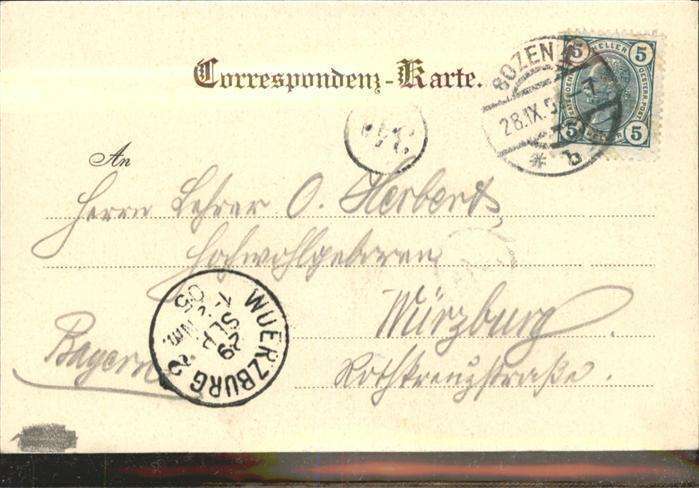 Correspondenz-Karte.
BOZEN 1
28.IX.
* b
5 HELLER 5
5 HELLER 5
An
Herrn Lehrer O. Herbert
Hochwohlgeboren
Würzburg
Rothkreuzstraße.
Bayern
WUERZBURG 2
29
SEP.
05